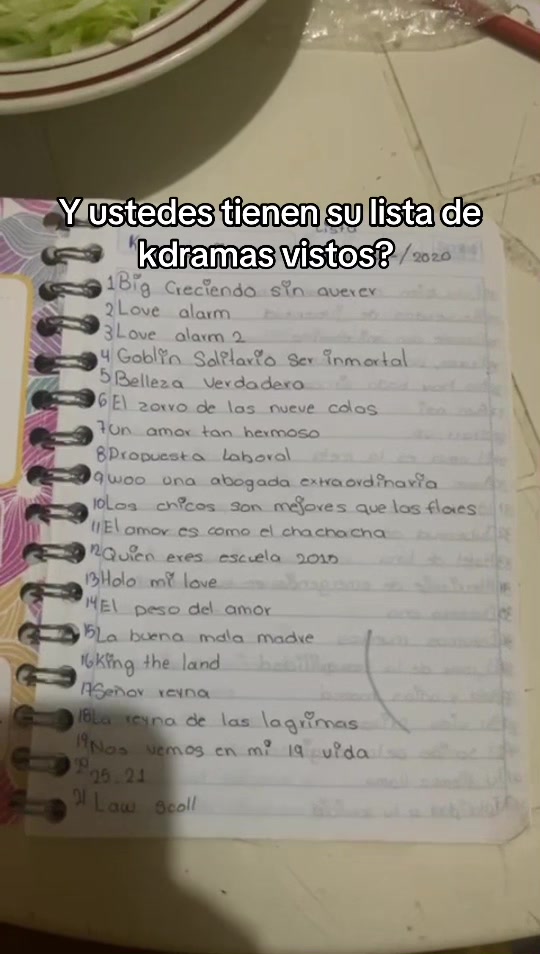 Y ustedes tienen su lista de
kdramas vistos?
Lista
/2020
1 Big Creciendo sin querer
2 Love alarm
3 Love alarm 2
4 Goblin Solitario ser inmortal
5 Belleza verdadera
6 El zorro de las nueve colas
7 un amor tan hermoso
8 Propuesta Laboral
9 woo una abogada extraordinaria
10 Los chicos son mejores que las flores
11 El amor es como el chachacha
12 Quién eres escuela 2015
13 Holo mi love
14 El peso del amor
15 La buena mala madre
16 King the land
17 Señor reyna
18 La reyna de las lagrimas
19 Nos vemos en mi 19 vida
20 25.21
21 Law scoll